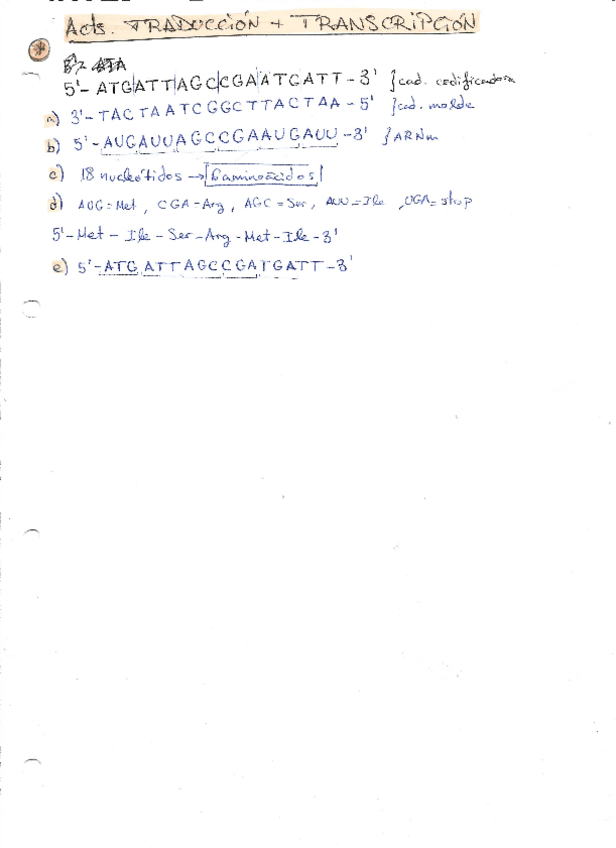 Acts. TRADUCCIÓN + TRANSCRIPCIÓN
5'- ATGATTAGCCGAATGATT - 3' } cad. codificadora
a) 3'- TACTAATCGGCTTACTAA - 5' } cad. molde
b) 5'- AUGAUUAGCCGAAUGAUU - 3' } ARNm
c) 18 nucleótidos → 6 aminoácidos
d) AUG = Met, CGA = Arg, AGC = Ser, AUU = Ile, UGA = stop
5'- Met - Ile - Ser - Arg - Met - Ile - 3'
e) 5'- ATGATTAGCCGATGATT - 3'